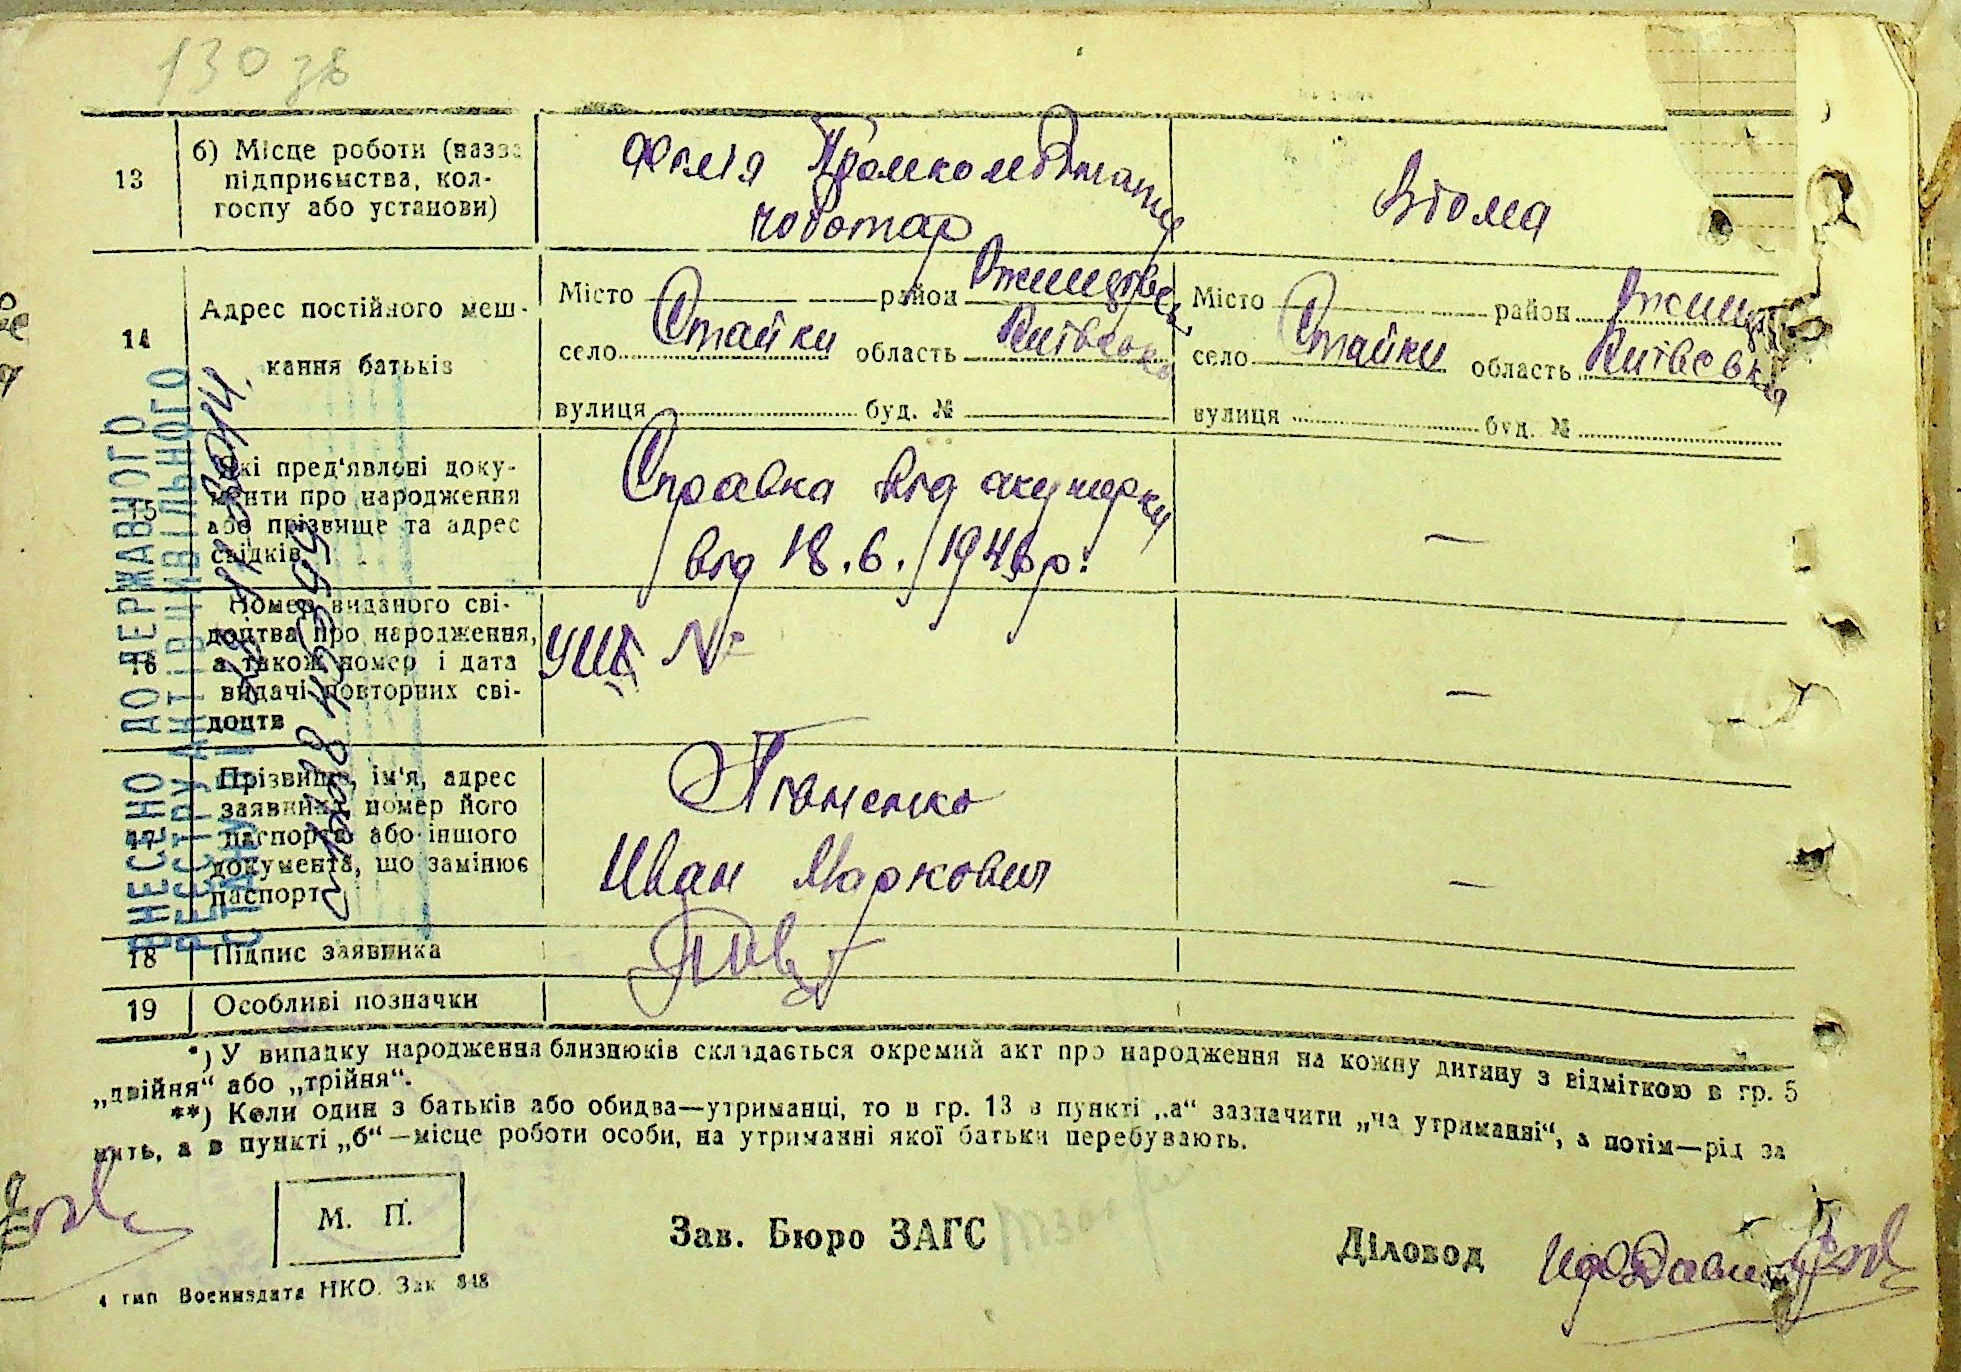 130 зв
13
б) Місце роботи (назва підприємства, колгоспу або установи)
Філія Промкомбінату
чоботар
Вдома
14
Адрес постійного мешкання батьків
Місто район Ржищівськ
село Стайки область Київська
вулиця буд. №
Місто район Ржищ
село Стайки область Київська
вулиця буд. №
15
Які пред'явлені документи про народження або прізвище та адрес свідків
Справка від акушерки
від 18.6.1946р.
—
16
Номер виданого свідоцтва про народження, а також номер і дата видачі повторних свідоцтв
№
—
17
Прізвище, ім'я, адрес заявника, номер його паспорта або іншого документа, що замінює паспорт
Иван Маркович
—
18
Підпис заявника
19
Особливі позначки
ВНЕСЕНО ДО ДЕРЖАВНОГО
РЕЄСТРУ АКТІВ ЦИВІЛЬНОГО
СТАНУ
*) У випадку народження близнюків складається окремий акт про народження на кожну дитину з відміткою в гр. 5
„двійня“ або „трійня“.
**) Коли один з батьків або обидва—утриманці, то в гр. 13 в пункті „а“ зазначити „на утриманні“, а потім—рід за
нить, а в пункті „б“—місце роботи особи, на утриманні якої батьки перебувають.
М. П.
Зав. Бюро ЗАГС
Діловод
4 тип Воениздата НКО. Зак 848